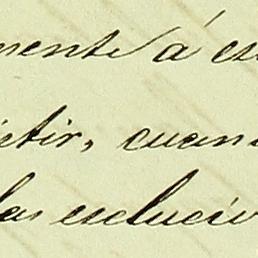 mente á es
ictir, cuan
las esclusiv